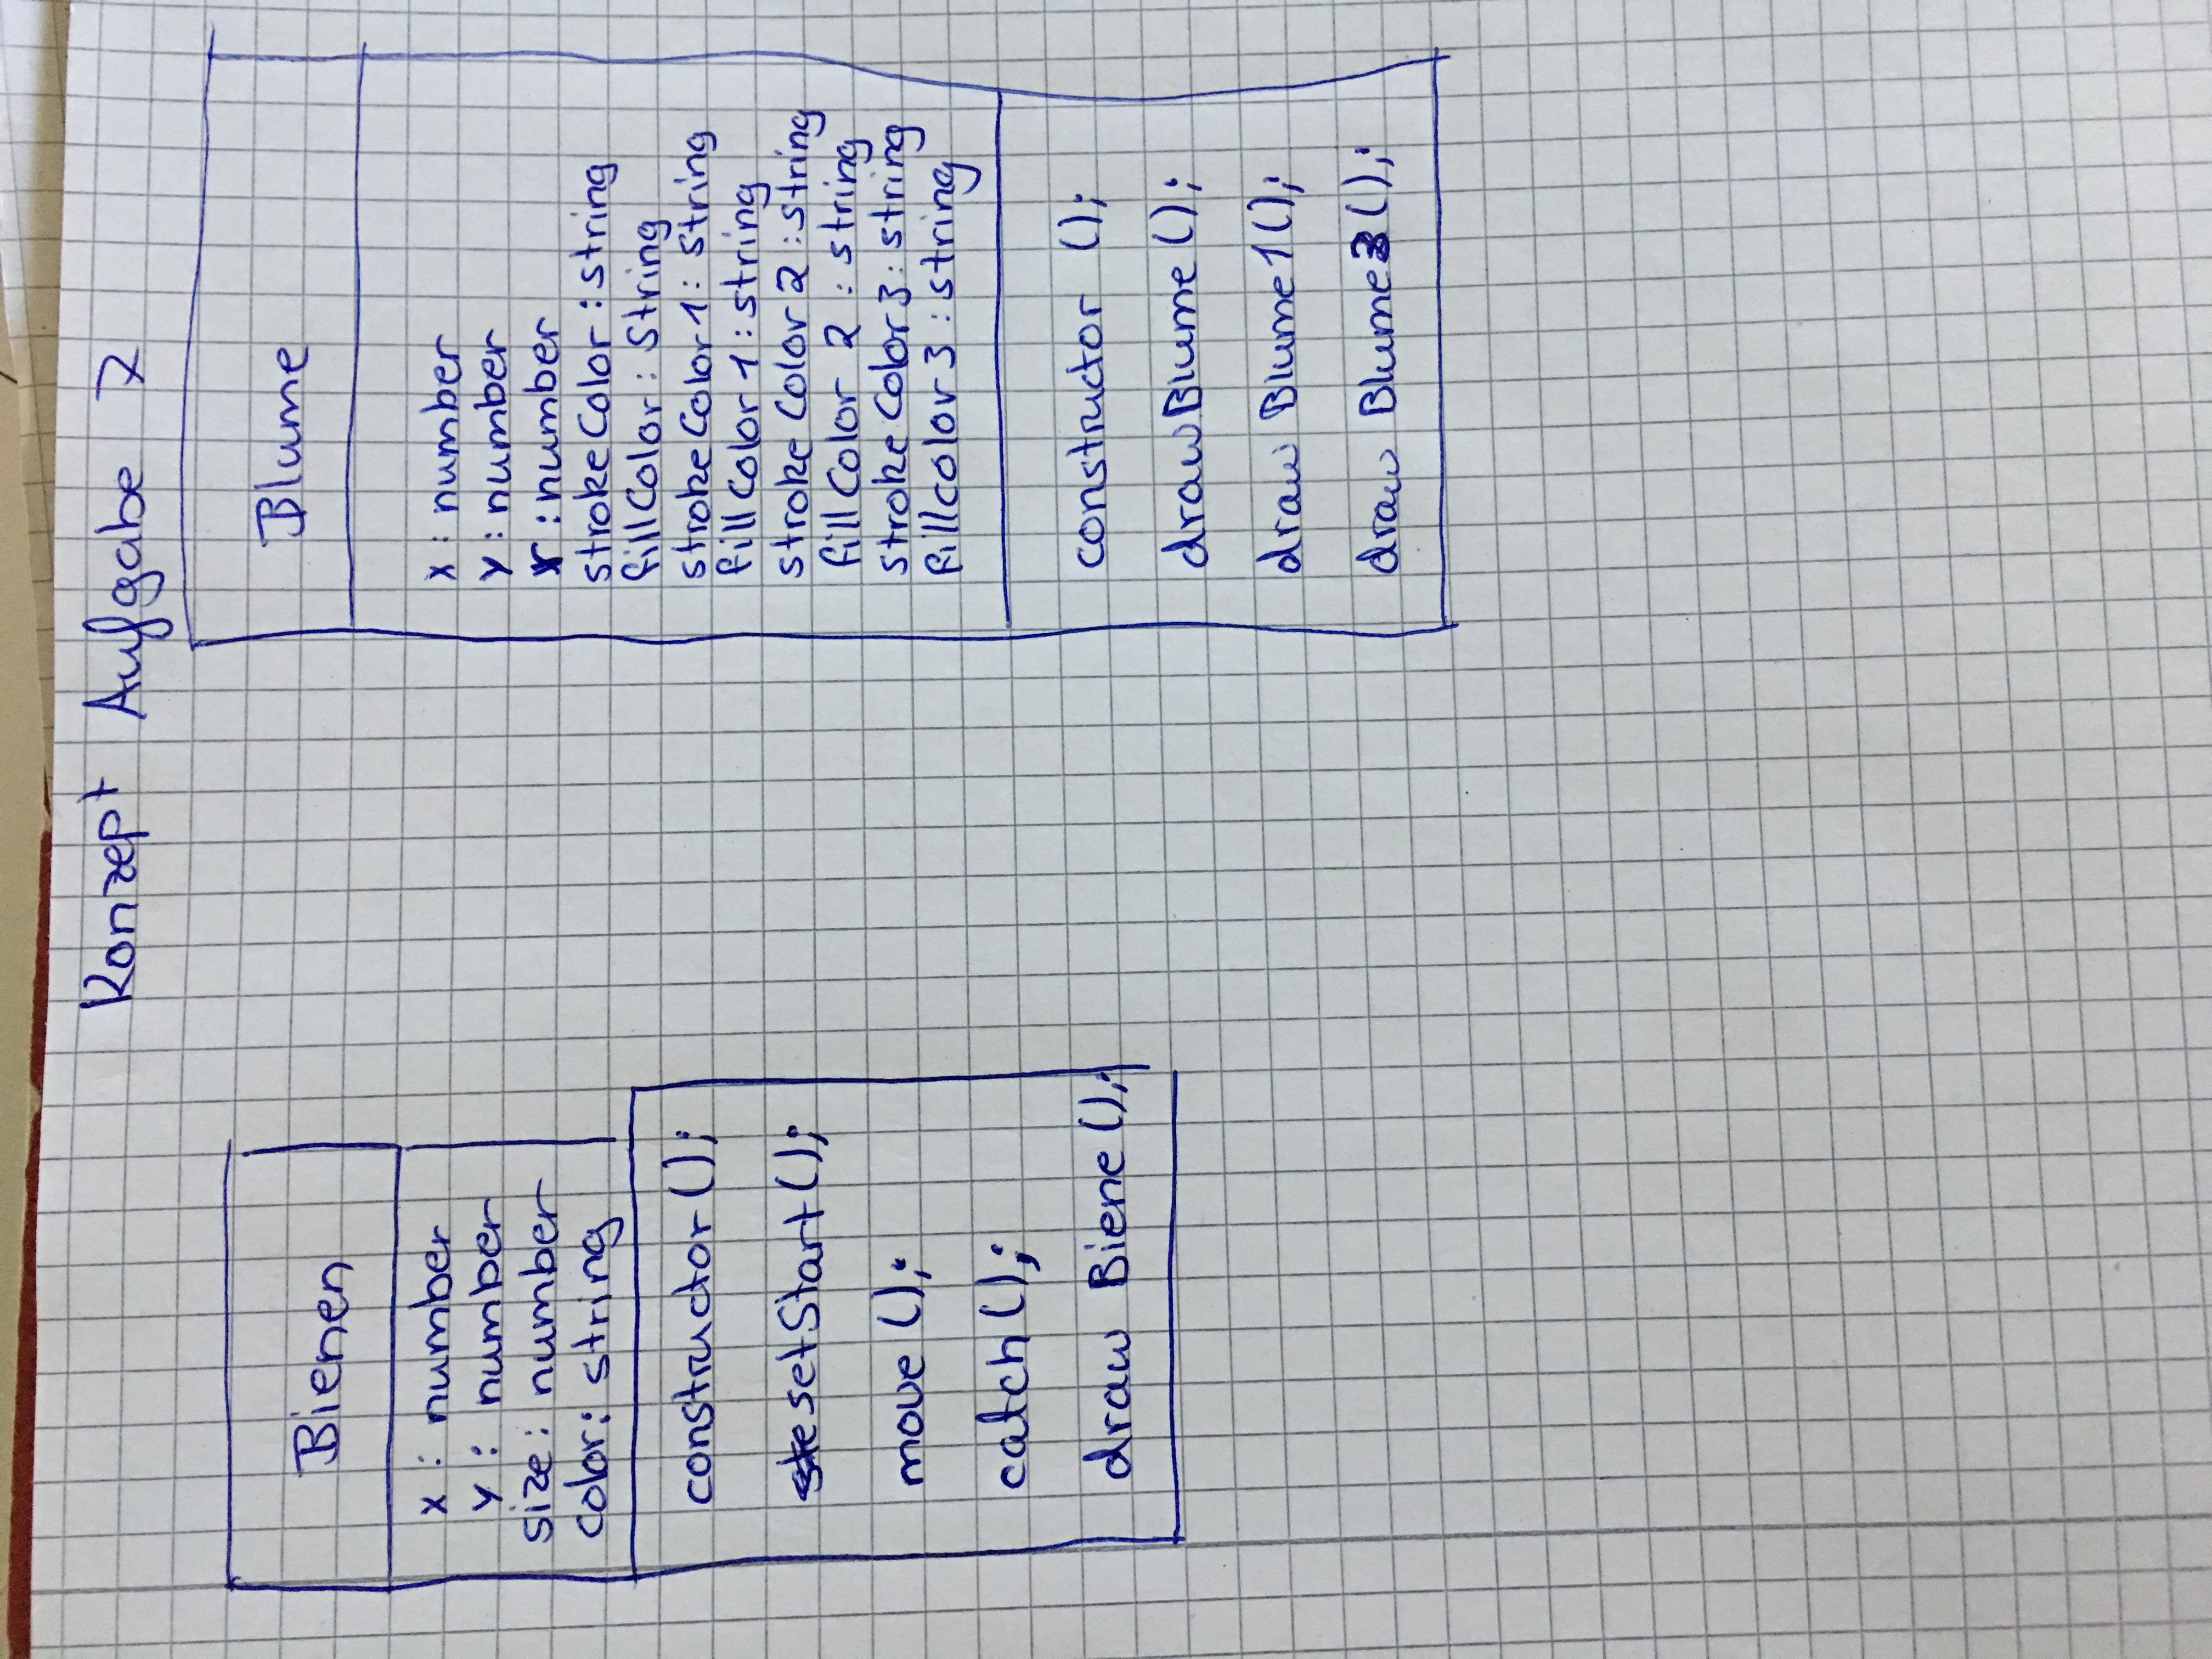 Konzept Aufgabe 7
Bienen
x : number
y : number
size: number
color: string
constructor();
setStart();
move ();
catch();
draw Biene();
Blume
x : number
y : number
r : number
strokeColor : string
fillColor : String
strokeColor1 : string
fillColor1 : string
stroke Color 2 : string
fillColor 2 : string
stroke Color 3 : string
fillcolor 3 : string
constructor ();
drawBlume ();
draw Blume1();
draw Blume3();